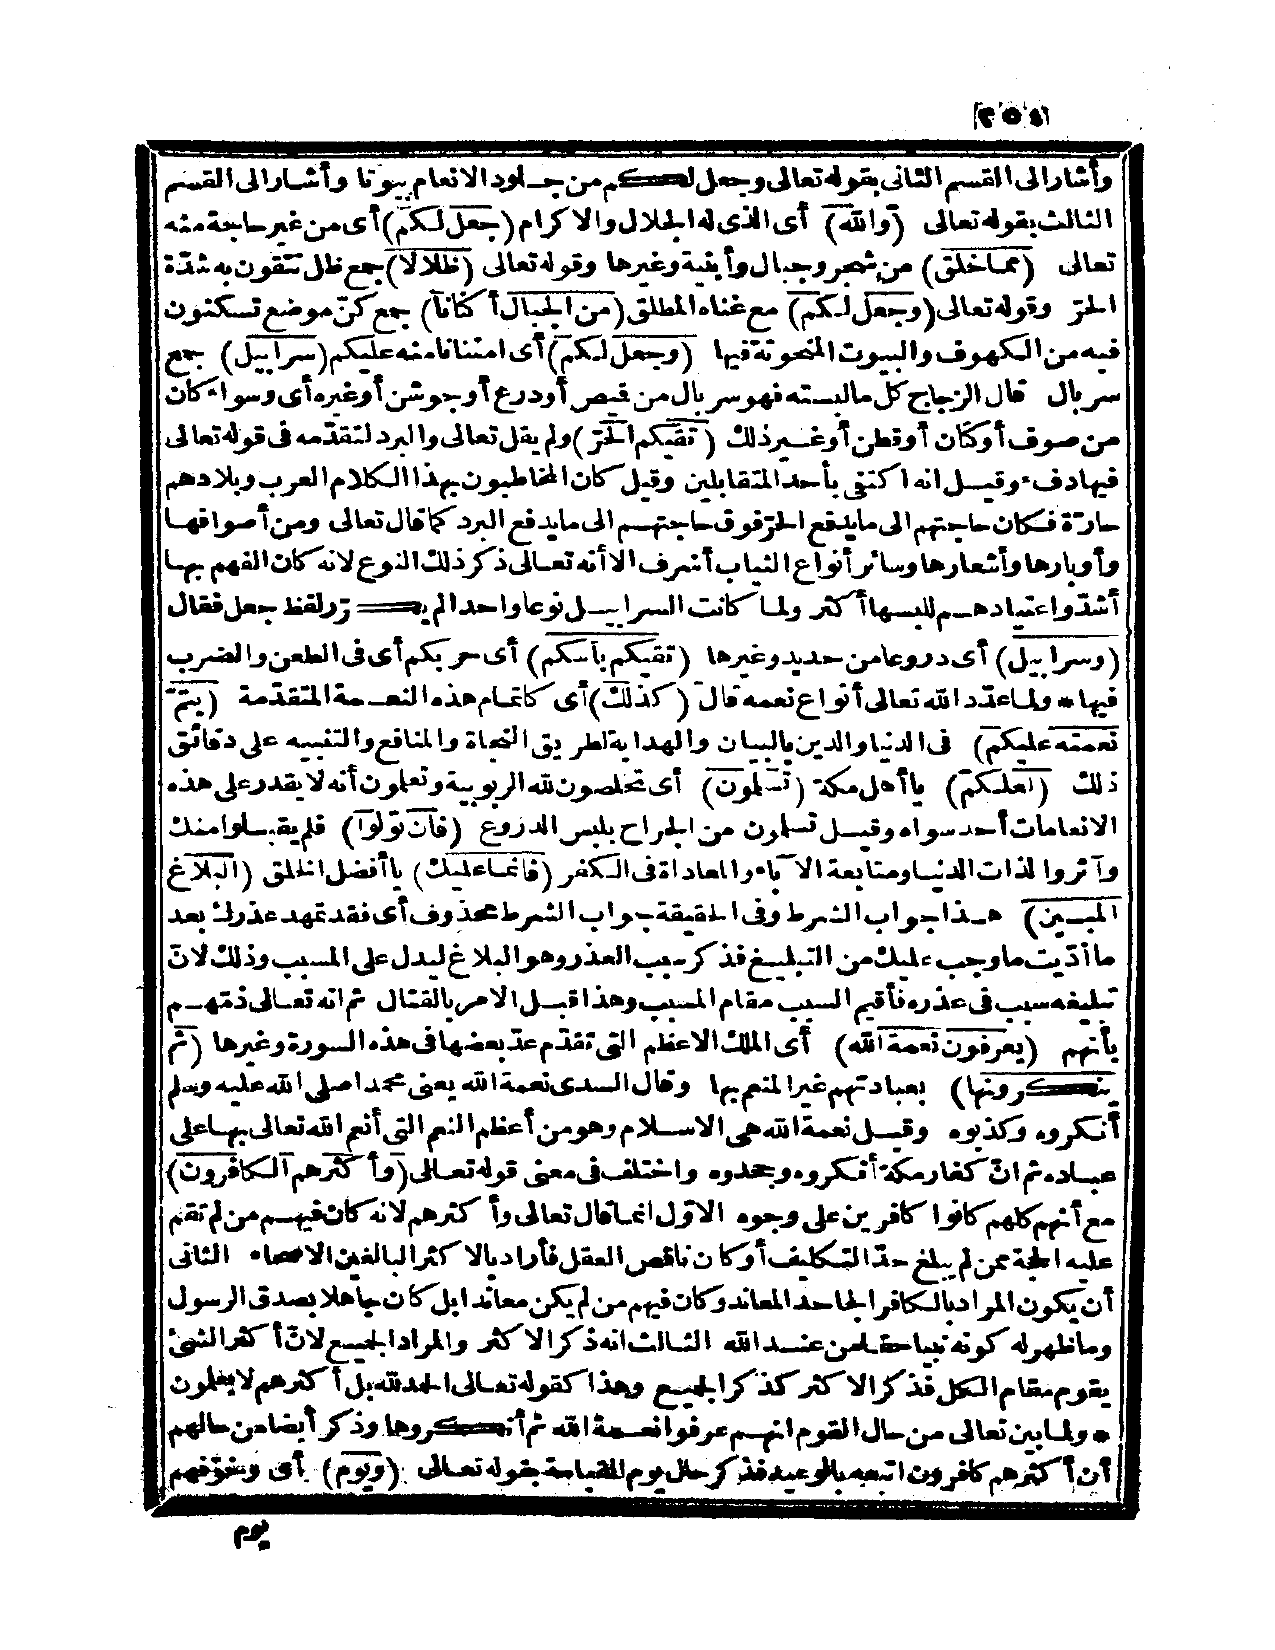 وأشار الى القسم الثانى بقوله تعالى وجعل لكم من جلود الانعام بيوتا وأشار الى القسم
الثالث بقوله تعالى (والله) أى الذى له الجلال والاكرام (جعل لكم) أى من غير حاجة منه
تعالى (مما خلق) من شجر وجبال وأبنية وغيرها وقوله تعالى (ظلالا) جمع ظل تتقون به شدّة
الحرّ وقوله تعالى (وجعل لكم) مع غناه المطلق (من الجبال أكنانا) جمع كنّ موضع تسكنون
فيه من الكهوف والبيوت المنحوتة فيها (وجعل لكم) أى امتنانا منه عليكم (سرابيل) جمع
سربال قال الزجاج كل ما لبسته فهو سربال من قيص أو درع أو جوشن أو غيره أى وسواء كان
من صوف أو كان أو قطن أو غير ذلك (تقيكم الحرّ) ولم يقل تعالى والبرد لتقدّمه فى قوله تعالى
فيها دفء وقيل انه اكتفى بأحد المتقابلين وقيل كان المخاطبون بهذا الكلام العرب وبلادهم
حارّة فكان حاجتهم الى ما يدفع الحرّ فوق حاجتهم الى ما يدفع البرد كما قال تعالى ومن أصوافها
وأوبارها وأشعارها وسائر أنواع الثياب أشرف الا أنه تعالى ذكر ذلك النوع لانه كان الفهم بها
أشدّ واعتيادهم للبسها أكثر ولما كانت السرابيل نوعا واحدا لم يكرّر لفظ جعل فقال
(وسرابيل) أى دروعا من حديد وغيرها (تقيكم بأسكم) أى حربكم أى فى الطعن والضرب
فيها * ولما عدّد الله تعالى أنواع نعمه قال (كذلك) أى كاتمام هذه النعمة المتقدّمة (يتمّ
نعمته عليكم) فى الدنيا والدين بالبيان والهداية لطريق النجاة والمنافع والتنبيه على دقائق
ذلك (لعلكم) يا أهل مكة (تسلمون) أى تخلصون لله الربوبية وتعلمون أنه لا يقدر على هذه
الانعامات أحد سواه وقيل تسلمون من الجراح بلبس الدروع (فان تولوا) فلم يقبلوا منك
وآثروا لذات الدنيا ومتابعة الآباء والمعاداة فى الكفر (فانما عليك) يا أفضل الخلق (البلاغ
المبين) هذا جواب الشرط وفى الحقيقة جواب الشرط محذوف أى فقد تمهد عذرك بعد
ما أدّيت ما وجب عليك من التبليغ فذكر سبب العذر وهو البلاغ ليدل على المسبب وذلك لانّ
تبليغه سبب فى عذره فأقيم السبب مقام المسبب وهذا قبل الامر بالقتال ثم انه تعالى ذمّهم
بأنهم (يعرفون نعمة الله) أى الملك الاعظم التى تقدّم عدّ بعضها فى هذه السورة وغيرها (ثم
ينكرونها) بعبادتهم غير المنعم بها وقال السدى نعمة الله يعنى محمدا صلى الله عليه وسلم
أنكروه وكذبوه وقيل نعمة الله هى الاسلام وهو من أعظم النعم التى أنعم الله تعالى بها على
عباده ثم انّ كفار مكة أنكروه وجحدوه واختلف فى معنى قوله تعالى (وأكثرهم الكافرون)
مع أنهم كلهم كانوا كافرين على وجوه الاوّل انما قال تعالى وأكثرهم لانه كان فيهم من لم تقم
عليه الحجة ممن لم يبلغ حدّ التكليف أو كان ناقص العقل فأراد بالاكثر البالغين الاصحاء الثانى
أن يكون المراد بالكافر الجاحد المعاند وكان فيهم من لم يكن معاندا بل كان جاهلا بصدق الرسول
وما ظهر له كونه نبيا حقا من عند الله الثالث انه ذكر الاكثر والمراد الجميع لانّ أكثر الشئ
يقوم مقام الكل فذكر الاكثر كذكر الجميع وهذا كقوله تعالى الحمد لله بل أكثرهم لا يعلمون
* ولما بين تعالى من حال القوم انهم عرفوا نعمة الله ثم أنكروها وذكر أيضا من حالهم
أن أكثرهم كافرون اتبعه بالوعيد فذكر حال يوم القيامة بقوله تعالى (ويوم) أى وخوّفهم
يوم